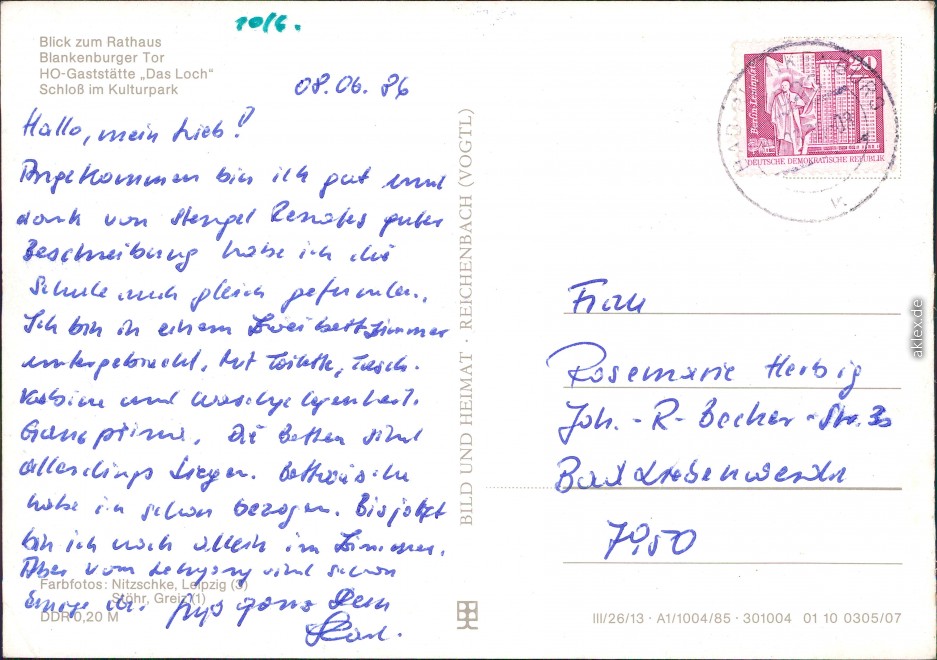 10/6.
Blick zum Rathaus
Blankenburger Tor
HO-Gaststätte „Das Loch“
Schloß im Kulturpark
08.06.86
Hallo, mein Lieb!
Angekommen bin ich gut und
dank von Stengel Renates guter
Beschreibung habe ich die
Schule auch gleich gefunden.
Ich bin in einem Zweibettzimmer
untergebracht. Mit Toilette,
und Waschgelegenheit.
Ganz prima. Die Betten sind
allerdings Liegen. Bettwäsche
habe ich schon bezogen. Bis jetzt
bin ich noch allein im Zimmer.
Aber vom Lehrgang sind schon
einige da. ganz Dein
Karl.
Farbfotos: Nitzschke, Leipzig (3)
Stöhr, Greiz (1)
DDR 0,20 M
BILD UND HEIMAT · REICHENBACH (VOGTL)
20
Berlin-Leninplatz
DEUTSCHE DEMOKRATISCHE REPUBLIK
Frau
Rosemarie Herbig
Joh.-R-Becher-Str.
Bad Liebenwerda
7950
III/26/13 · A1/1004/85 · 301004 01 10 0305/07
aklex.de